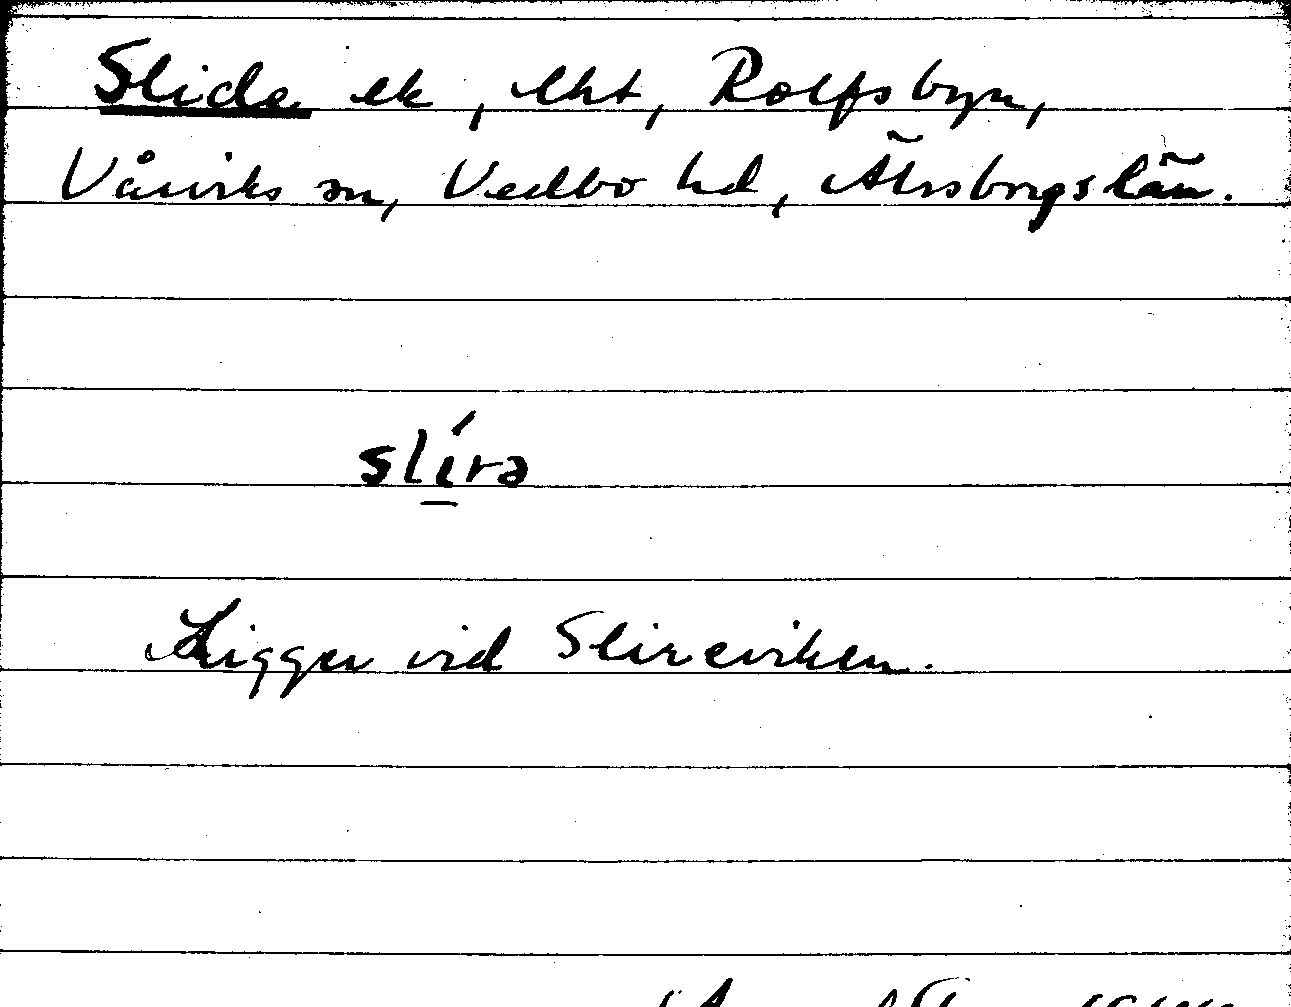 Slide ek, lht, Rolfsbyn,
Vårviks sn, Vedbo hd, Älvsborgs län.
slírə
Ligger vid Slireviken.